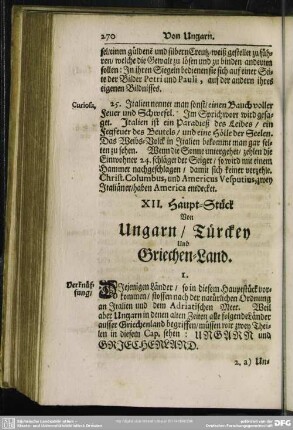 270 Von Ungarn.
sel/einen güldenē und silbern Creutz-weiß gestellet zu füh-
ren/ welche die Gewalt zu lösen und zu binden andeuten
sollen: In ihren Siegeln bedienen sie sich auf einer Sei-
te der Bilder Petri und Pauli, auf der andern ihres
eigenen Bildnisses.
Curiosa, 25. Italien nennet man sonst: einen Bauch voller
Feuer und Schwefel. Im Sprichwort wird gesa-
get. Italien ist ein Paradieß des Leibes/ ein
Fegfeuer des Beutels/ und eine Hölle der Seelen.
Das Weibs-Volck in Italien bekommt man gar sel-
ten zu sehen. Wenn die Sonne untergehet/ zehlen die
Einwohner 24. schläget der Seiger/ so wird mit einem
Hammer nachgeschlagen/ damit sich keiner verzehle.
Christ. Columbus, und Americus Vesputius, zwey
Italiäner/ haben America entdecket.
XII. Haupt-Stück
Von
Ungarn/ Türckey
Und
Griechen-Land.
1.
Verknüpf-
fung/
DIejenigen Länder/ so in diesem Hauptstück vor-
kommen/ stossen nach der natürlichen Ordnung
an Italien und dem Adriatischen Meer. Weil
aber Ungarn in denen alten Zeiten alle folgende Länder
ausser Griechenland begriffen/ müssen wir zwey Thei-
len in diesem Cap. sehen: URGARN und
GRIECHENLAND.
2. a) Un-